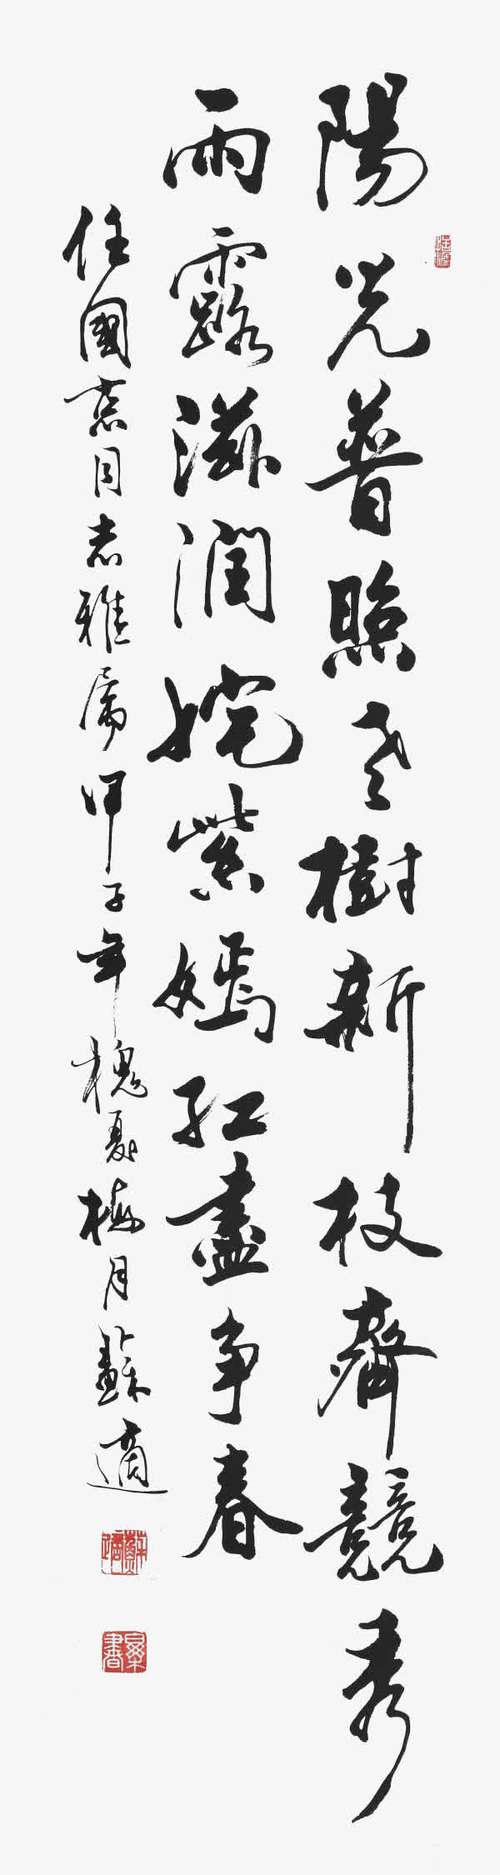 陽光普照老樹新枝齊競秀
雨露滋潤姹紫嫣紅盡争春
任國憲同志雅属甲子年槐夏梅月蘇適